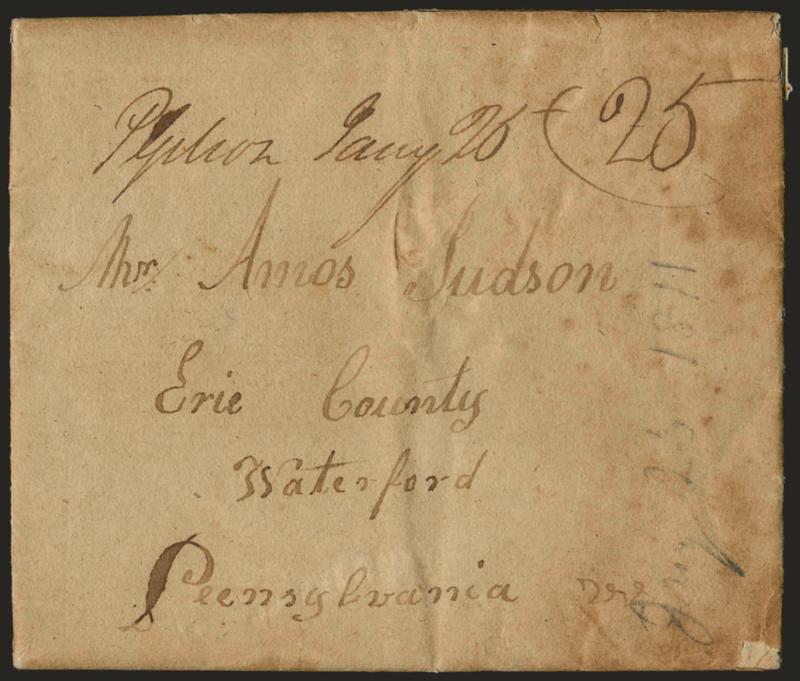 Jany 26 25
Mr. Amos Judson
Erie County
Waterford
Peensylvania
Jany 25 1811